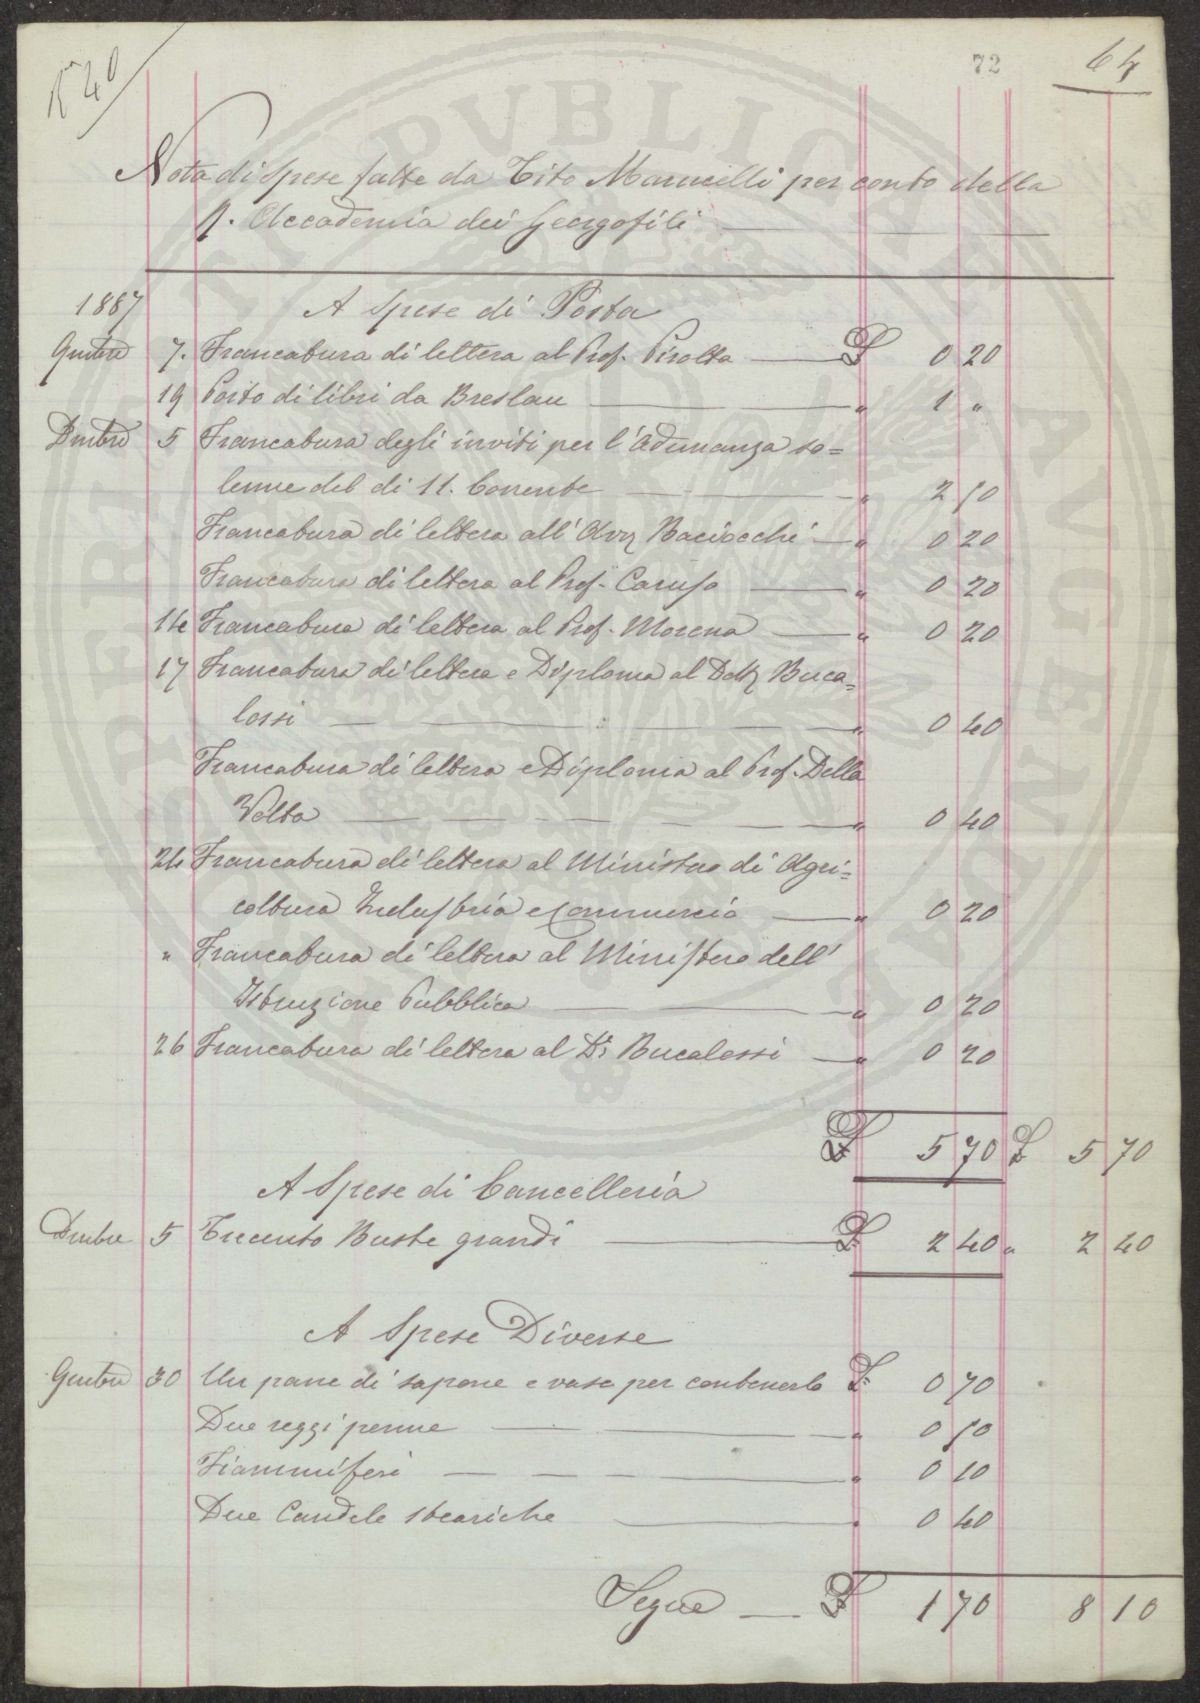 N° 40
72
64
Nota di Spese fatte da Tito Marucelli per conto della
R. Accademia dei Georgofili
1887
A Spese di Posta
Gmbre 7. Francatura di lettera al Prof. Pirotta £ 0 20
19 Porto di libri da Breslau " 1 "
Dmbre 5 Francatura degli inviti per l'Adunanza so=
lenne del di 11. Corrente " 2 50
Francatura di lettera all' Avv Baciocchi " 0 20
Francatura di lettera al Prof. Caruso " 0 20
14 Francatura di lettera al Prof. Morena " 0 20
17 Francatura di lettera e Diploma al Dott Buca=
lossi " 0 40
Francatura di lettera e Diploma al Prof. Della
Volta " 0 40
24 Francatura di lettera al Ministro di Agri=
coltura Industria e Commercio " 0 20
" Francatura di lettera al Ministero dell'
Istruzione Pubblica " 0 20
26 Francatura di lettera al Dr Bucalossi " 0 20
£ 5 70 £ 5 70
A Spese di Cancelleria
Dmbre 5 Trecento Buste grandi £ 2 40 " 2 40
A Spese Diverse
Gmbre 30 Un pane di sapone e vaso per contenerlo £ 0 70
Due reggi penne " 0 50
Fiammiferi " 0 10
Due Candele steariche " 0 40
Segue £ 1 70 8 10